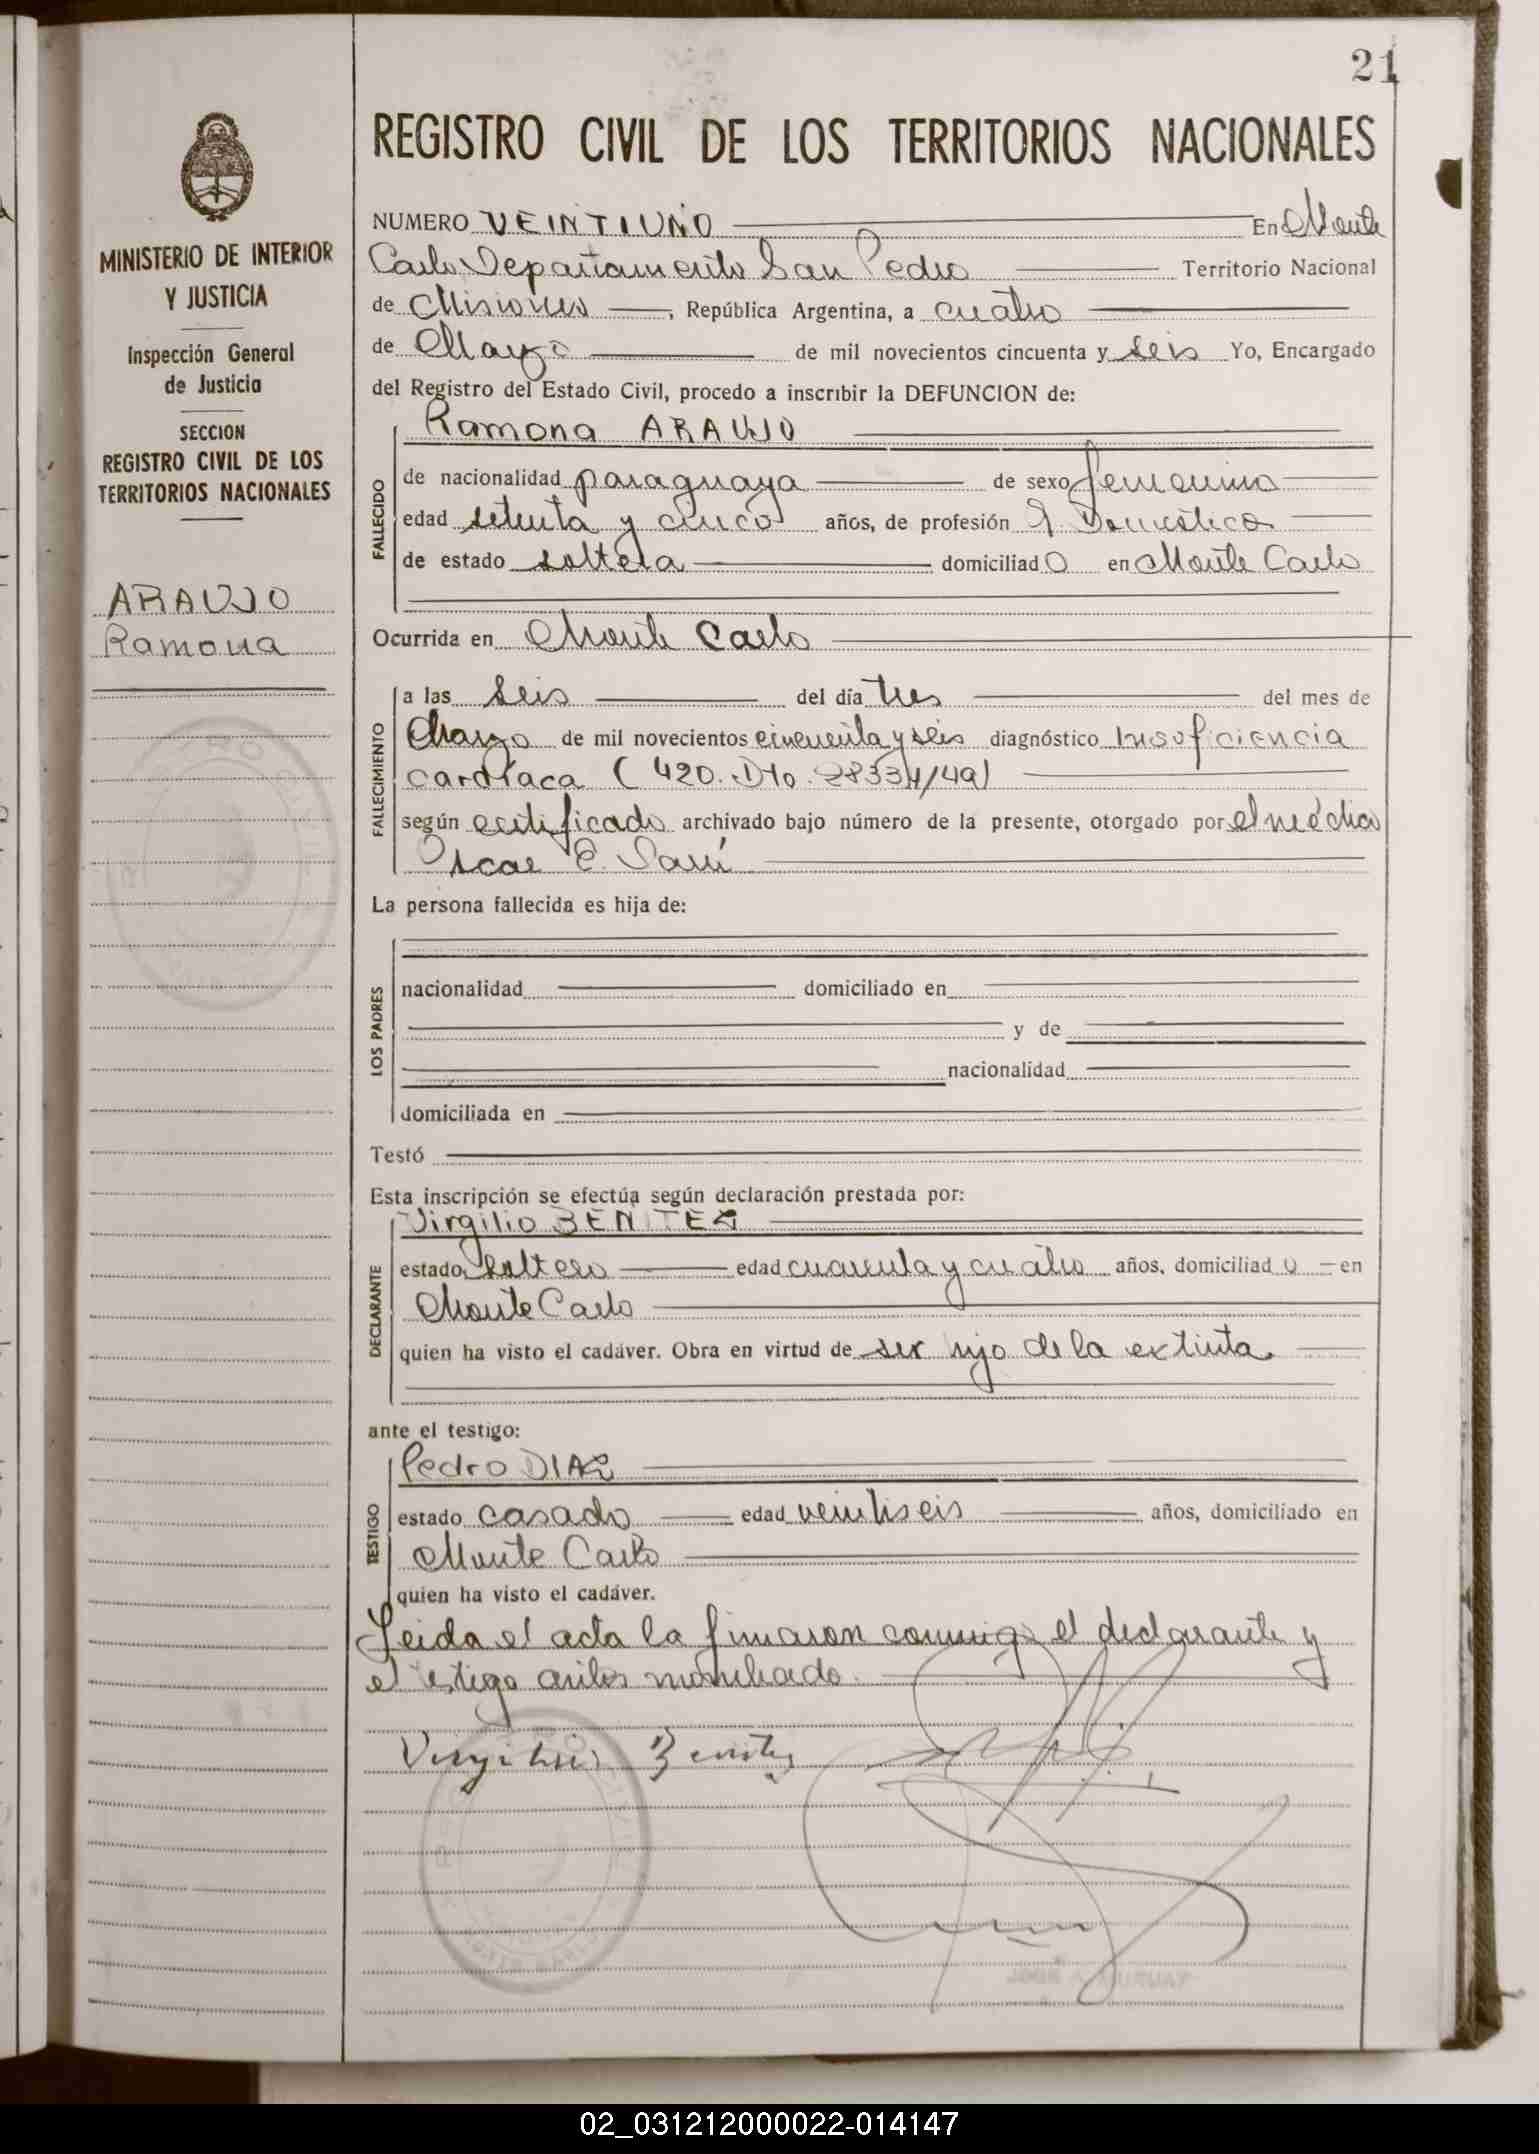 21
REGISTRO CIVIL DE LOS TERRITORIOS NACIONALES
MINISTERIO DE INTERIOR
Y JUSTICIA
Inspección General
de Justicia
SECCION
REGISTRO CIVIL DE LOS
TERRITORIOS NACIONALES
ARAUJO
Ramona
NUMERO VEINTIUNO En Monte
Carlo Departamento San Pedro Territorio Nacional
de Misiones, República Argentina, a cuatro
de Mayo de mil novecientos cincuenta y seis Yo, Encargado
del Registro del Estado Civil, procedo a inscribir la DEFUNCION de:
Ramona ARAUJO
FALLECIDO
de nacionalidad paraguaya de sexo femenino
edad setenta y cinco años, de profesión Q. Domésticos
de estado soltera domiciliado en Monte Carlo
Ocurrida en Monte Carlo
FALLECIMIENTO
a las seis del día tres del mes de
Mayo de mil novecientos cincuenta y seis diagnóstico Insuficiencia
cardíaca (420. Dto. 28334/49)
según certificado archivado bajo número de la presente, otorgado por el médico
Oscar E.
La persona fallecida es hija de:
LOS PADRES
nacionalidad domiciliado en
y de
nacionalidad
domiciliada en
Testó
Esta inscripción se efectúa según declaración prestada por:
Virgilio BENITEZ
DECLARANTE
estado soltero edad cuarenta y cuatro años, domiciliado en
Monte Carlo
quien ha visto el cadáver. Obra en virtud de ser hijo de la extinta.
ante el testigo:
Pedro DIAZ
TESTIGO
estado casado edad veintiseis años, domiciliado en
Monte Carlo
quien ha visto el cadáver.
Leida el acta la firmaron conmigo el declarante y
el testigo antes nombrado.
Virgilio Benitez
02_031212000022-014147